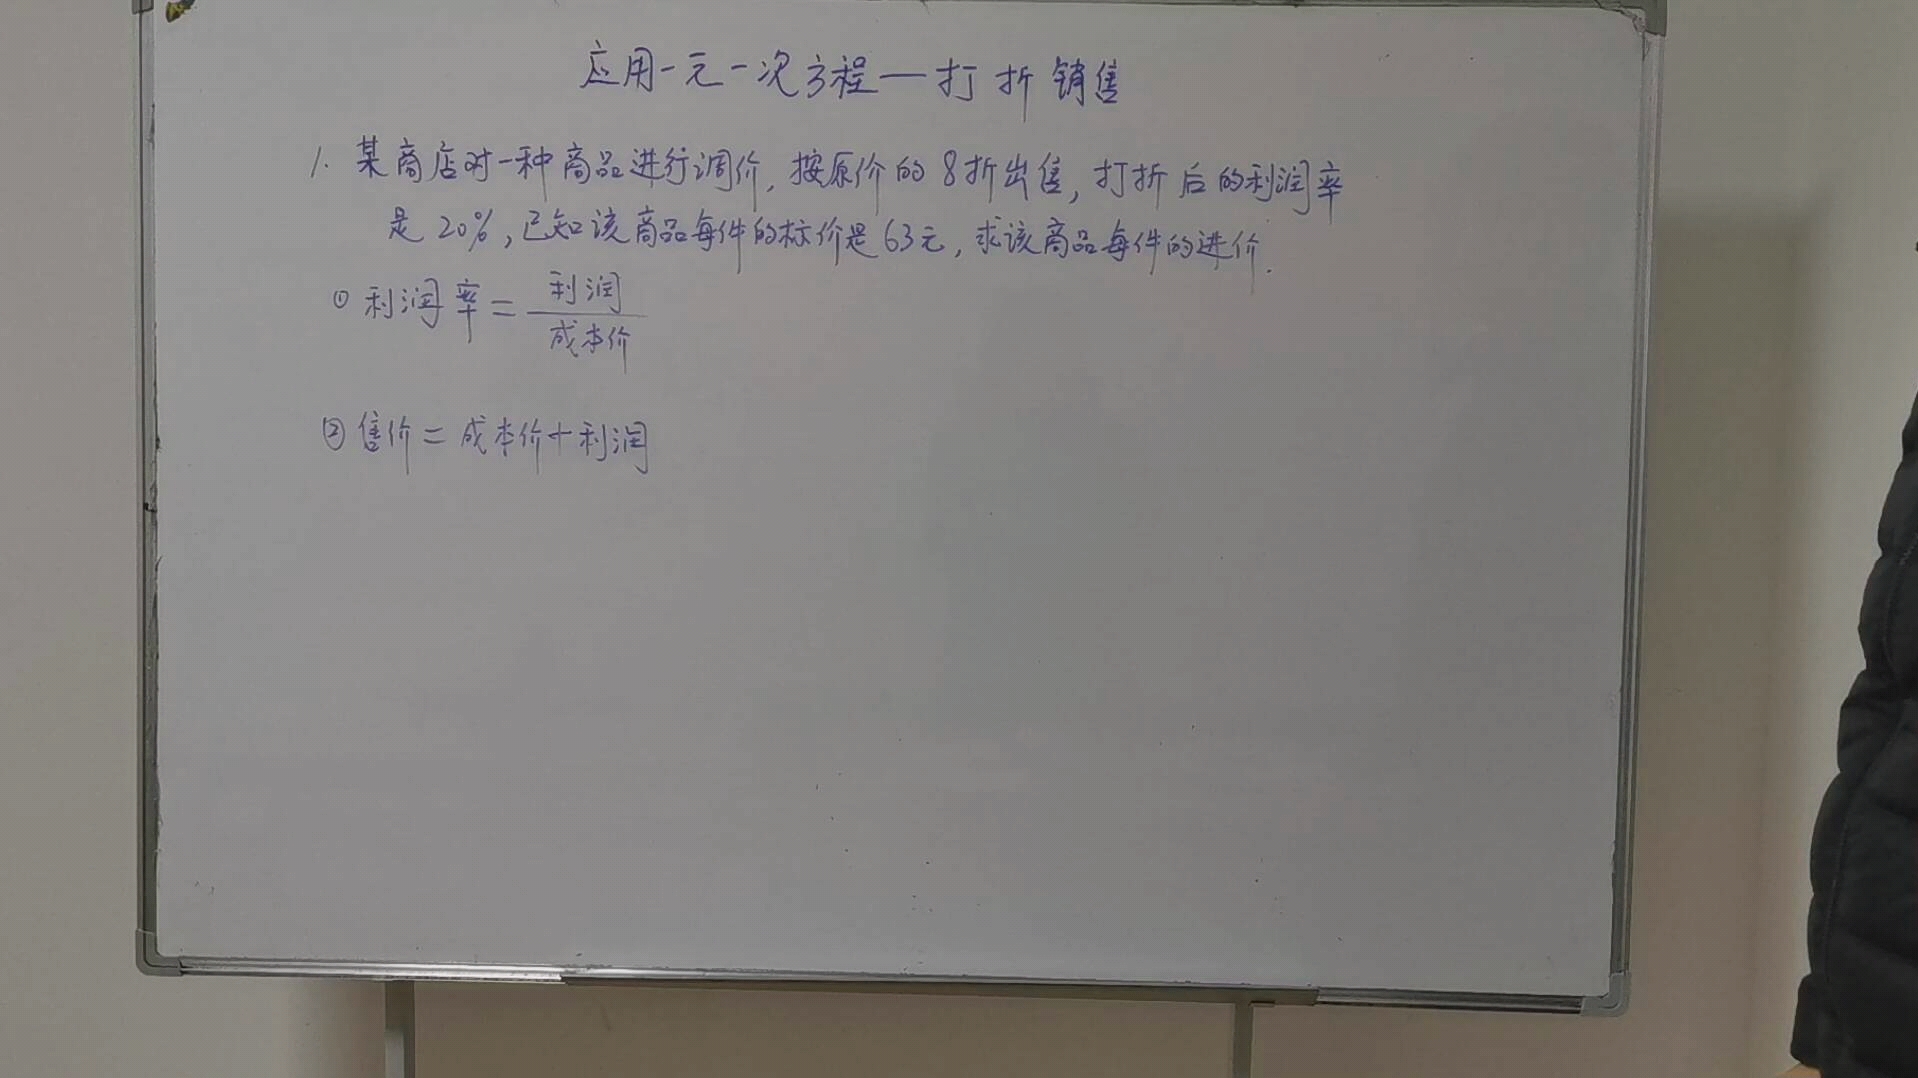 应用一元一次方程—打折销售
1. 某商店对一种商品进行调价,按原价的8折出售,打折后的利润率
是20%,已知该商品每件的标价是63元,求该商品每件的进价.
① 利润率=利润/成本价
② 售价=成本价+利润